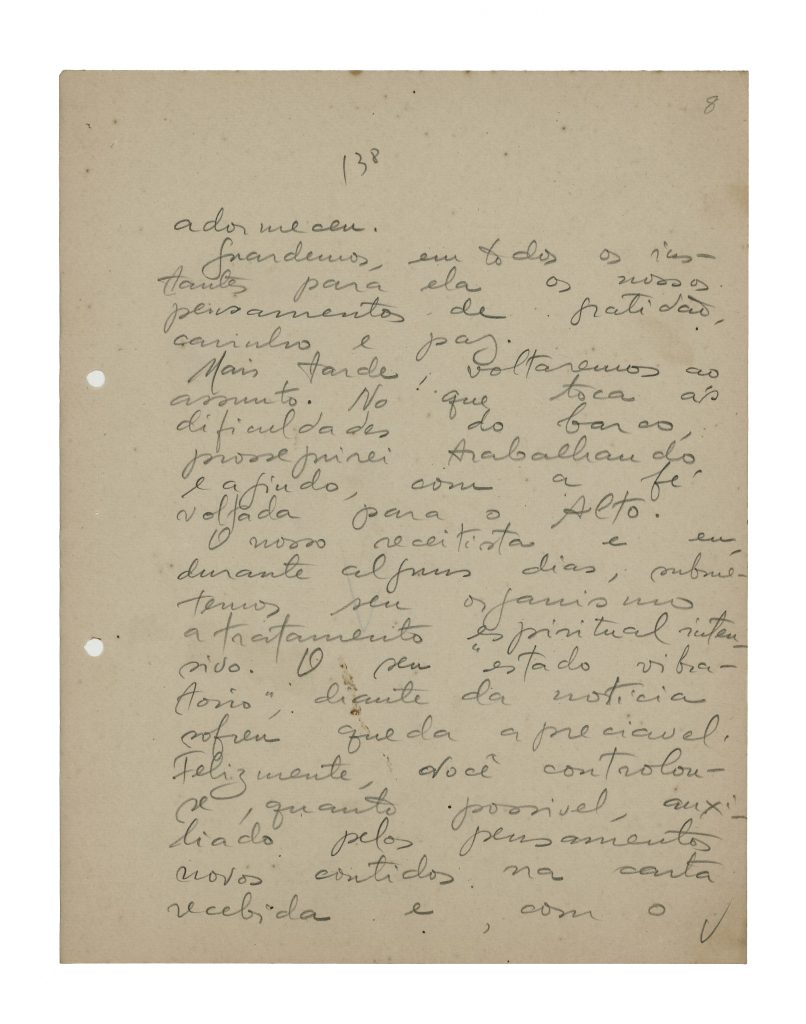 8
138
adormeceu.
Guardemos, em todos os ins-
tantes para ela os nossos
pensamentos de gratidão,
carinho e paz.
Mais tarde, voltaremos ao
assunto. No que toca às
dificuldades do barco,
prosseguirei trabalhando
e agindo, com a fé
voltada para o Alto.
O nosso receitista e eu,
durante alguns dias, subme-
temos seu organismo
a tratamento espiritual inten-
sivo. O seu "estado vibra-
torio", diante da noticia
sofreu queda apreciavel.
Felizmente, você controlou-
se, quanto possivel, auxi-
liado pelos pensamentos
novos contidos na carta
recebida e, com o